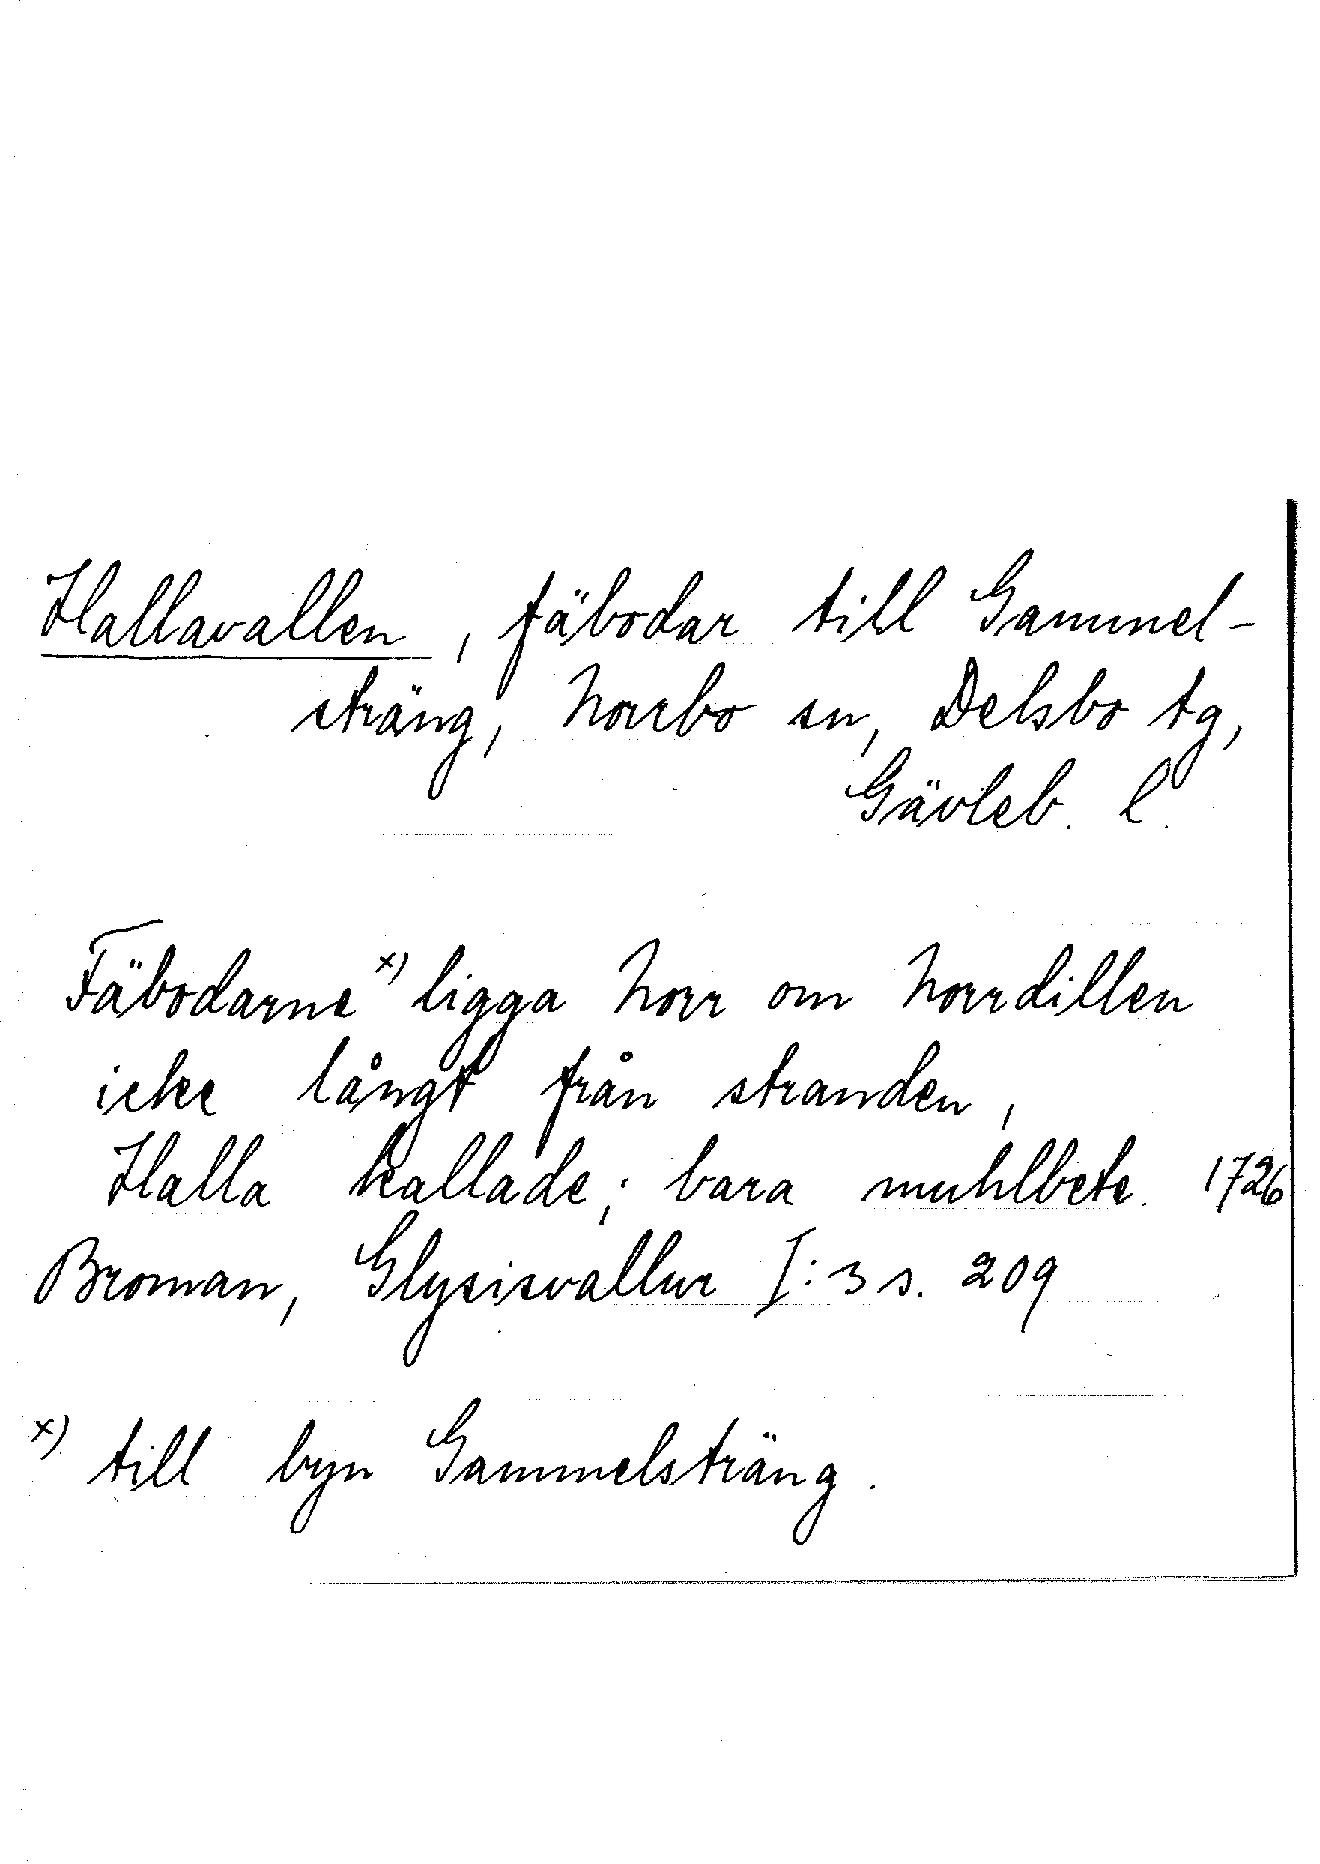 Hallavallen, fäbodar till Gammel-
sträng, Norrbo sn, Delsbo tg,
Gävleb. l.
Fäbodarne x) ligga Norr om Norrdillen
icke långt från stranden,
Halla kallade; bara muhlbete. 1726
Broman, Glysisvallur I:3 s. 209
x) till byn Gammelsträng.